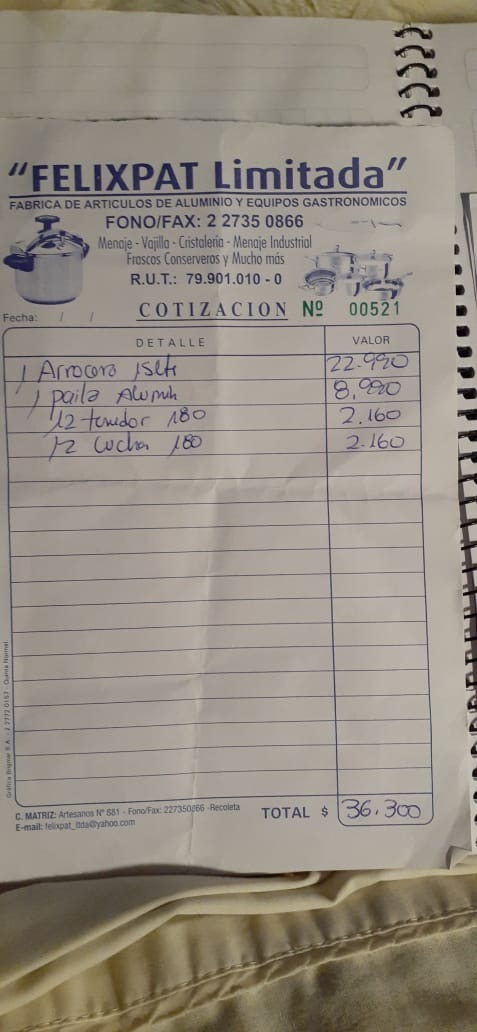 "FELIXPAT Limitada"
FABRICA DE ARTICULOS DE ALUMINIO Y EQUIPOS GASTRONOMICOS
FONO/FAX: 2 2735 0866
Menaje - Vajilla - Cristalería - Menaje Industrial
Frascos Conserveros y Mucho más
R.U.T.: 79.901.010 - 0
Fecha: / / COTIZACION Nº 00521
DETALLE VALOR
1 Arrocera 15lts 22.990
1 paila Alumin 8,990
12 tenedor 180 2.160
12 cuchar 180 2.160
C. MATRIZ: Artesanos Nº 681 - Fono/Fax: 227350866 - Recoleta
E-mail: felixpat_ltda@yahoo.com
TOTAL $ 36.300